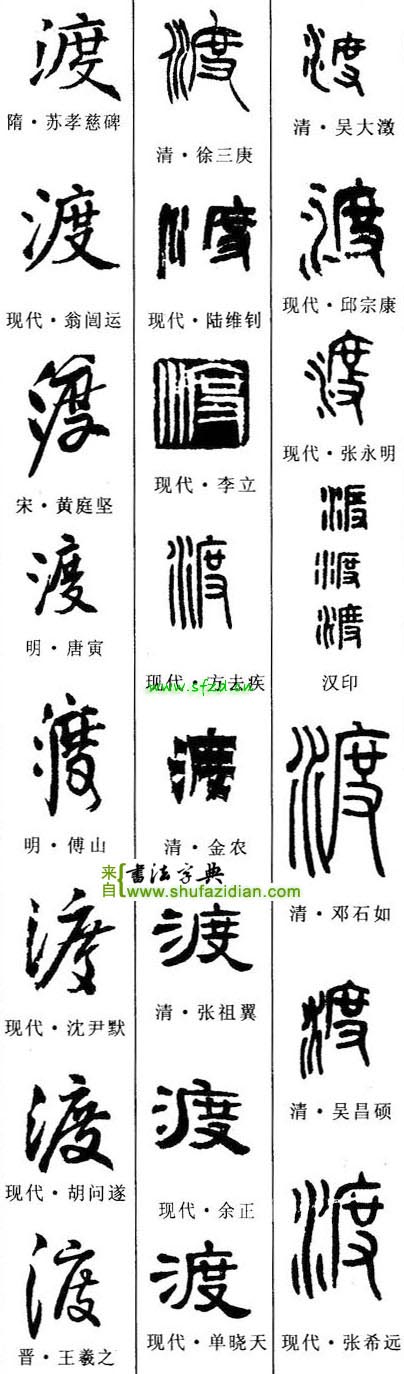 渡
隋·苏孝慈碑
渡
现代·翁闿运
渡
宋·黄庭坚
渡
明·唐寅
渡
明·傅山
渡
现代·沈尹默
渡
现代·胡问遂
渡
晋·王羲之
渡
清·徐三庚
渡
现代·陆维钊
渡
现代·李立
渡
现代·方去疾
www.sfzd.cn
渡
清·金农
来自
书法字典
www.shufazidian.com
渡
清·张祖翼
渡
现代·余正
渡
现代·单晓天
渡
清·吴大澂
渡
现代·邱宗康
渡
现代·张永明
渡
渡
渡
汉印
渡
清·邓石如
渡
清·吴昌硕
渡
现代·张希远